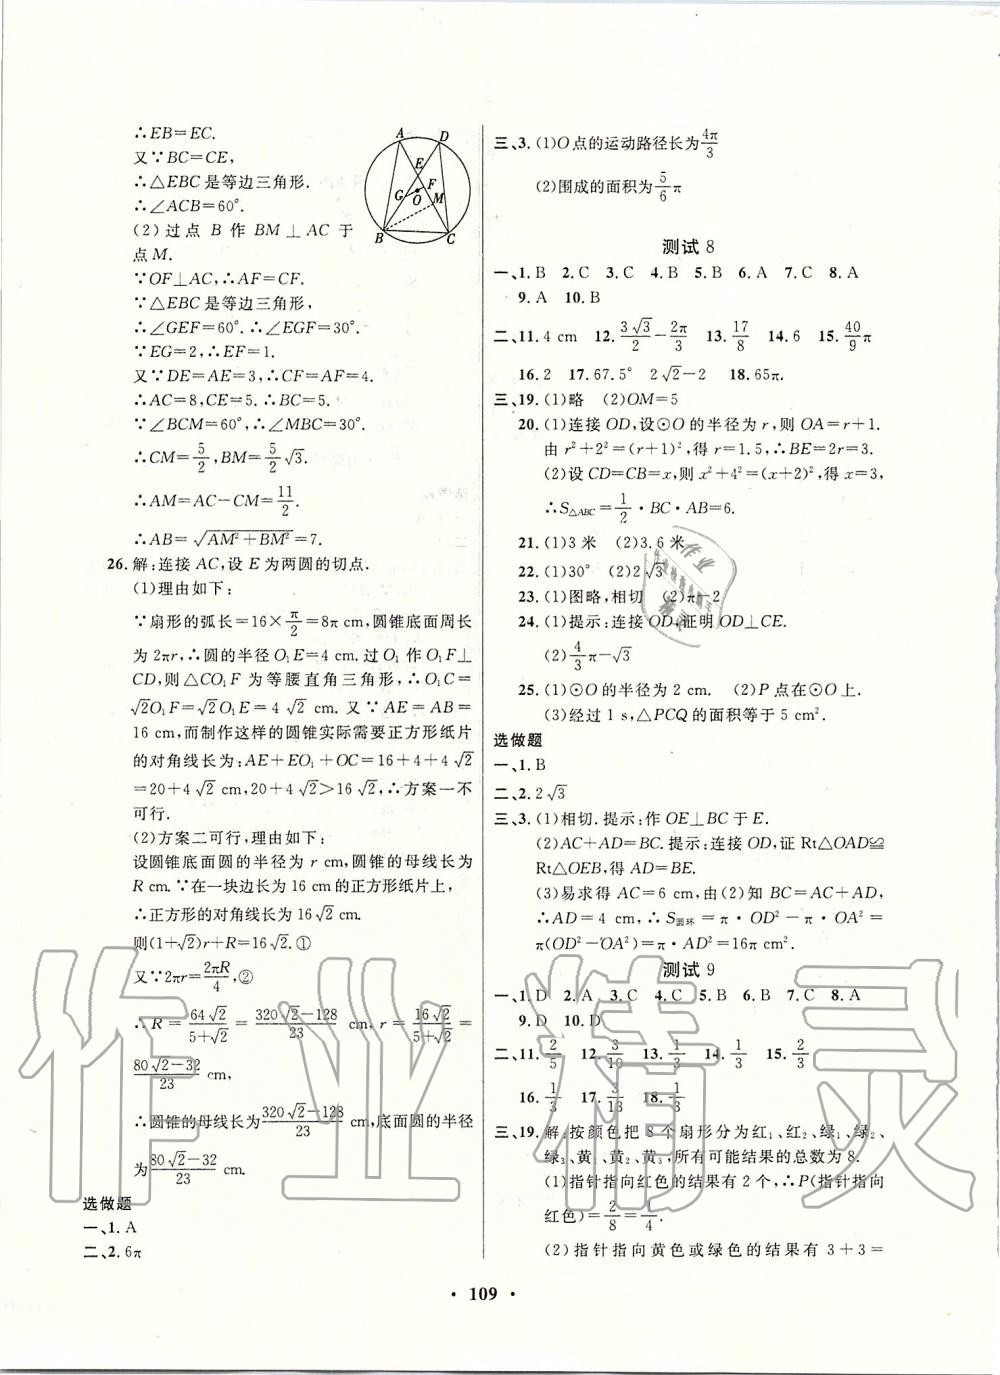 ∴EB=EC.
又∵BC=CE,
∴△EBC是等边三角形.
∴∠ACB=60°.
(2) 过点 B 作 BM⊥AC 于
点M.
∵OF⊥AC,∴AF=CF.
∵△EBC是等边三角形,
∴∠GEF=60°.∴∠EGF=30°.
∵EG=2,∴EF=1.
又∵DE=AE=3,∴CF=AF=4.
∴AC=8,CE=5.∴BC=5.
∵∠BCM=60°,∴∠MBC=30°.
∴CM=5/2,BM=5/2√3.
∴AM=AC−CM=11/2.
∴AB=√(AM²+BM²)=7.
A D E F G O M B C
26. 解:连接 AC,设 E 为两圆的切点.
(1)理由如下:
∵扇形的弧长=16×π/2=8π cm,圆锥底面周长
为 2πr,∴圆的半径 O₁E=4 cm. 过 O₁ 作 O₁F⊥
CD,则△CO₁F 为等腰直角三角形,∴O₁C=
√2O₁F=√2O₁E=4√2 cm. 又∵AE=AB=
16 cm,而制作这样的圆锥实际需要正方形纸片
的对角线长为:AE+EO₁+OC=16+4+4√2
=20+4√2 cm,20+4√2>16√2,∴方案一不
可行.
(2)方案二可行,理由如下:
设圆锥底面圆的半径为 r cm,圆锥的母线长为
R cm.∵在一块边长为 16 cm 的正方形纸片上,
∴正方形的对角线长为 16√2 cm.
则(1+√2)r+R=16√2.①
又∵2πr=2πR/4,②
∴R=64√2/(5+√2)=(320√2−128)/23 cm,r=16√2/(5+√2)=
(80√2−32)/23 cm,
∴圆锥的母线长为(320√2−128)/23 cm,底面圆的半径
为(80√2−32)/23 cm.
选做题
一、1. A
二、2. 6π
三、3. (1)O点的运动路径长为4π/3
(2)围成的面积为5/6π
测试 8
一、1. B 2. C 3. C 4. B 5. B 6. A 7. C 8. A
9. A 10. B
二、11. 4 cm 12. 3√3/2−2π/3 13. 17/8 14. 6 15. 40/9π
16. 2 17. 67.5° 2√2−2 18. 65π.
三、19. (1)略 (2)OM=5
20. (1)连接 OD,设⊙O 的半径为 r,则 OA=r+1.
由 r²+2²=(r+1)²,得 r=1.5,∴BE=2r=3.
(2)设 CD=CB=x,则 x²+4²=(x+2)²,得 x=3.
∴S△ABC=1/2·BC·AB=6.
21. (1)3 米 (2)3.6 米
22. (1)30° (2)2√3
23. (1)图略,相切 (2)π−2
24. (1)提示:连接 OD,证明 OD⊥CE.
(2)4/3π−√3
25. (1)⊙O 的半径为 2 cm. (2)P 点在⊙O 上.
(3)经过 1 s,△PCQ 的面积等于 5 cm².
选做题
一、1. B
二、2. 2√3
三、3. (1)相切. 提示:作 OE⊥BC 于 E.
(2)AC+AD=BC. 提示:连接 OD,证 Rt△OAD≌
Rt△OEB,得 AD=BE.
(3)易求得 AC=6 cm,由(2)知 BC=AC+AD,
∴AD=4 cm,∴S圆环=π·OD²−π·OA²=
π(OD²−OA²)=π·AD²=16π cm².
测试 9
一、1. D 2. A 3. C 4. C 5. B 6. B 7. C 8. A
9. D 10. D
二、11. 2/5 12. 3/10 13. 1/3 14. 1/3 15. 2/3
16. 1/3 17. 3/13 18. 1/3
三、19. 解:按颜色把 8 个扇形分为红₁、红₂、绿₁、绿₂、
绿₃、黄₁、黄₂、黄₃,所有可能结果的总数为 8.
(1)指针指向红色的结果有 2 个,∴P(指针指向
红色)=2/8=1/4.
(2)指针指向黄色或绿色的结果有 3+3=
· 109 ·
作业精灵